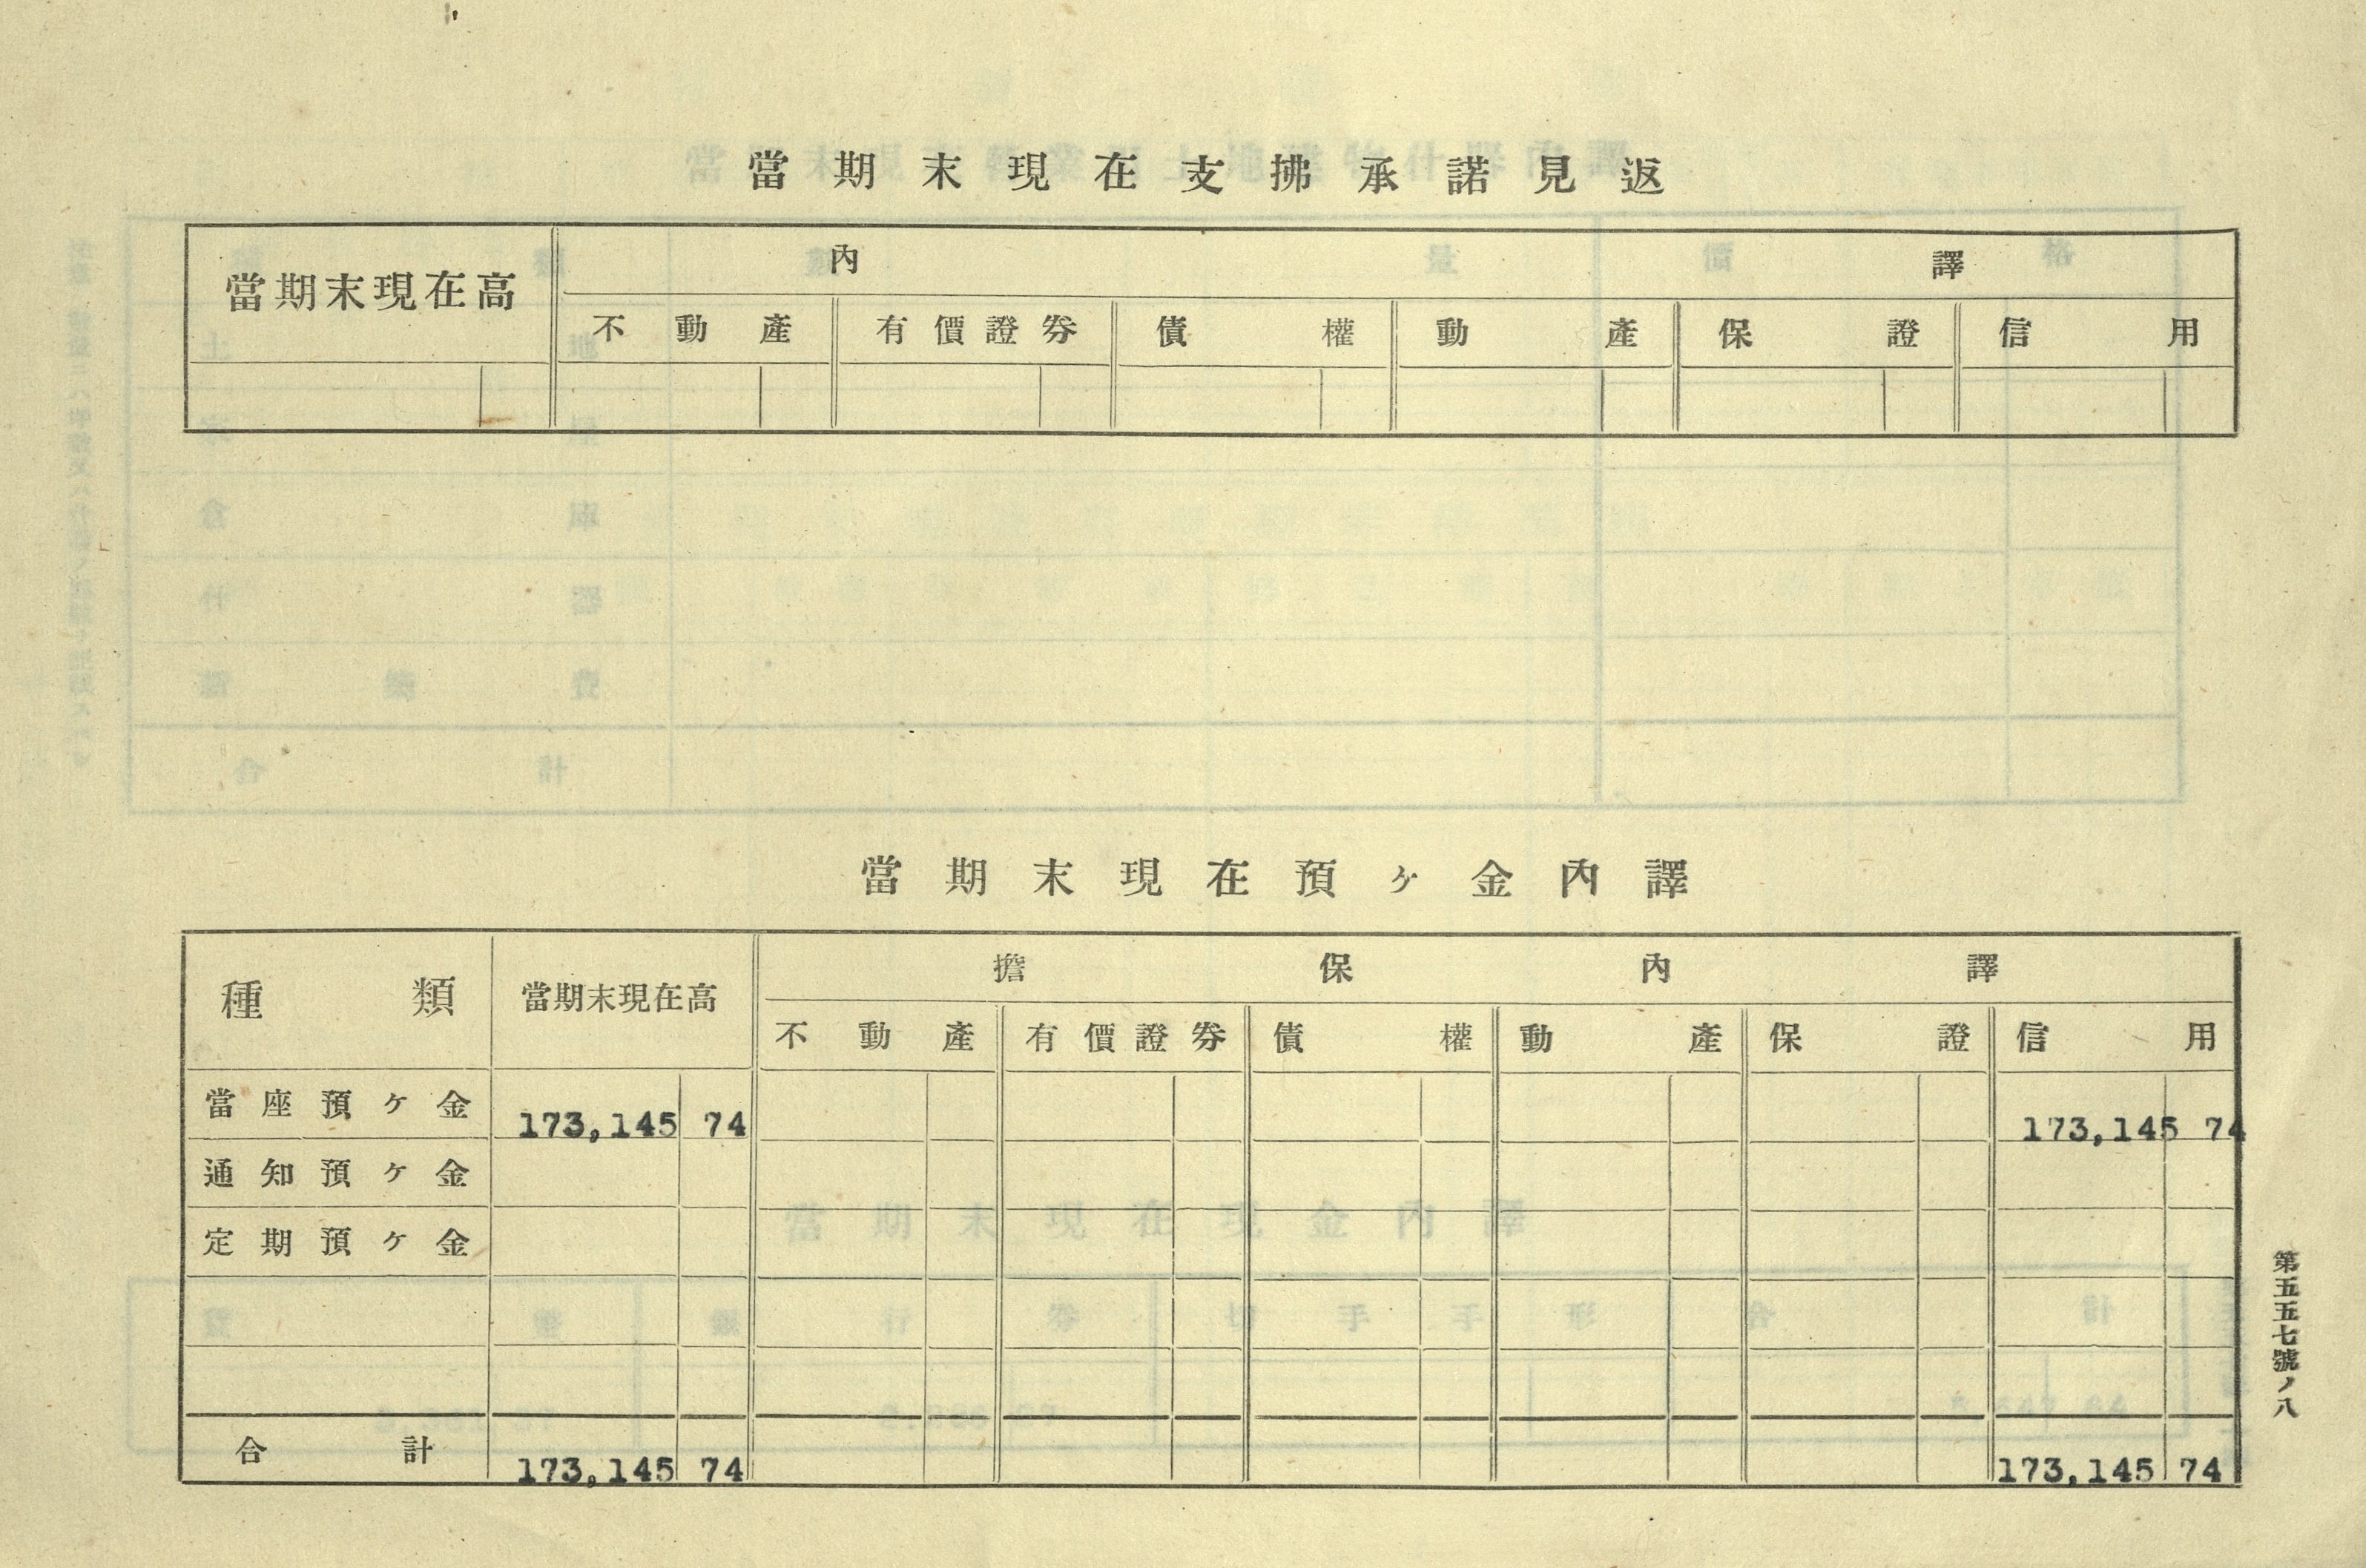 當期末現在支拂承諾見返
當期末現在高 內譯
不動產 有價證券 債權 動產 保證 信用
當期末現在預ヶ金內譯
種類 當期末現在高 擔保內譯
不動產 有價證券 債權 動產 保證 信用
當座預ヶ金 173,145 74 173,145 74
通知預ヶ金
定期預ヶ金
合計 173,145 74 173,145 74
第五五七號ノ八